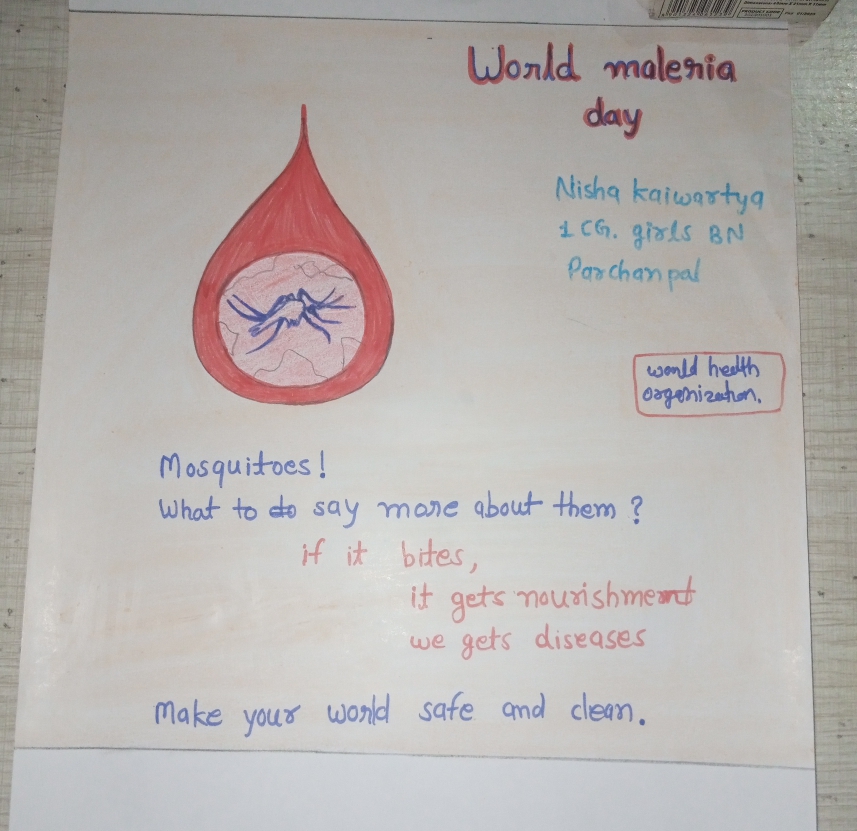 World maleria
day
Nisha kaiwartya
1 CG. girls BN
Parchanpal
world health
organization.
Mosquitoes!
What to do say more about them?
if it bites,
it gets nourishment
we gets diseases
Make your world safe and clean.